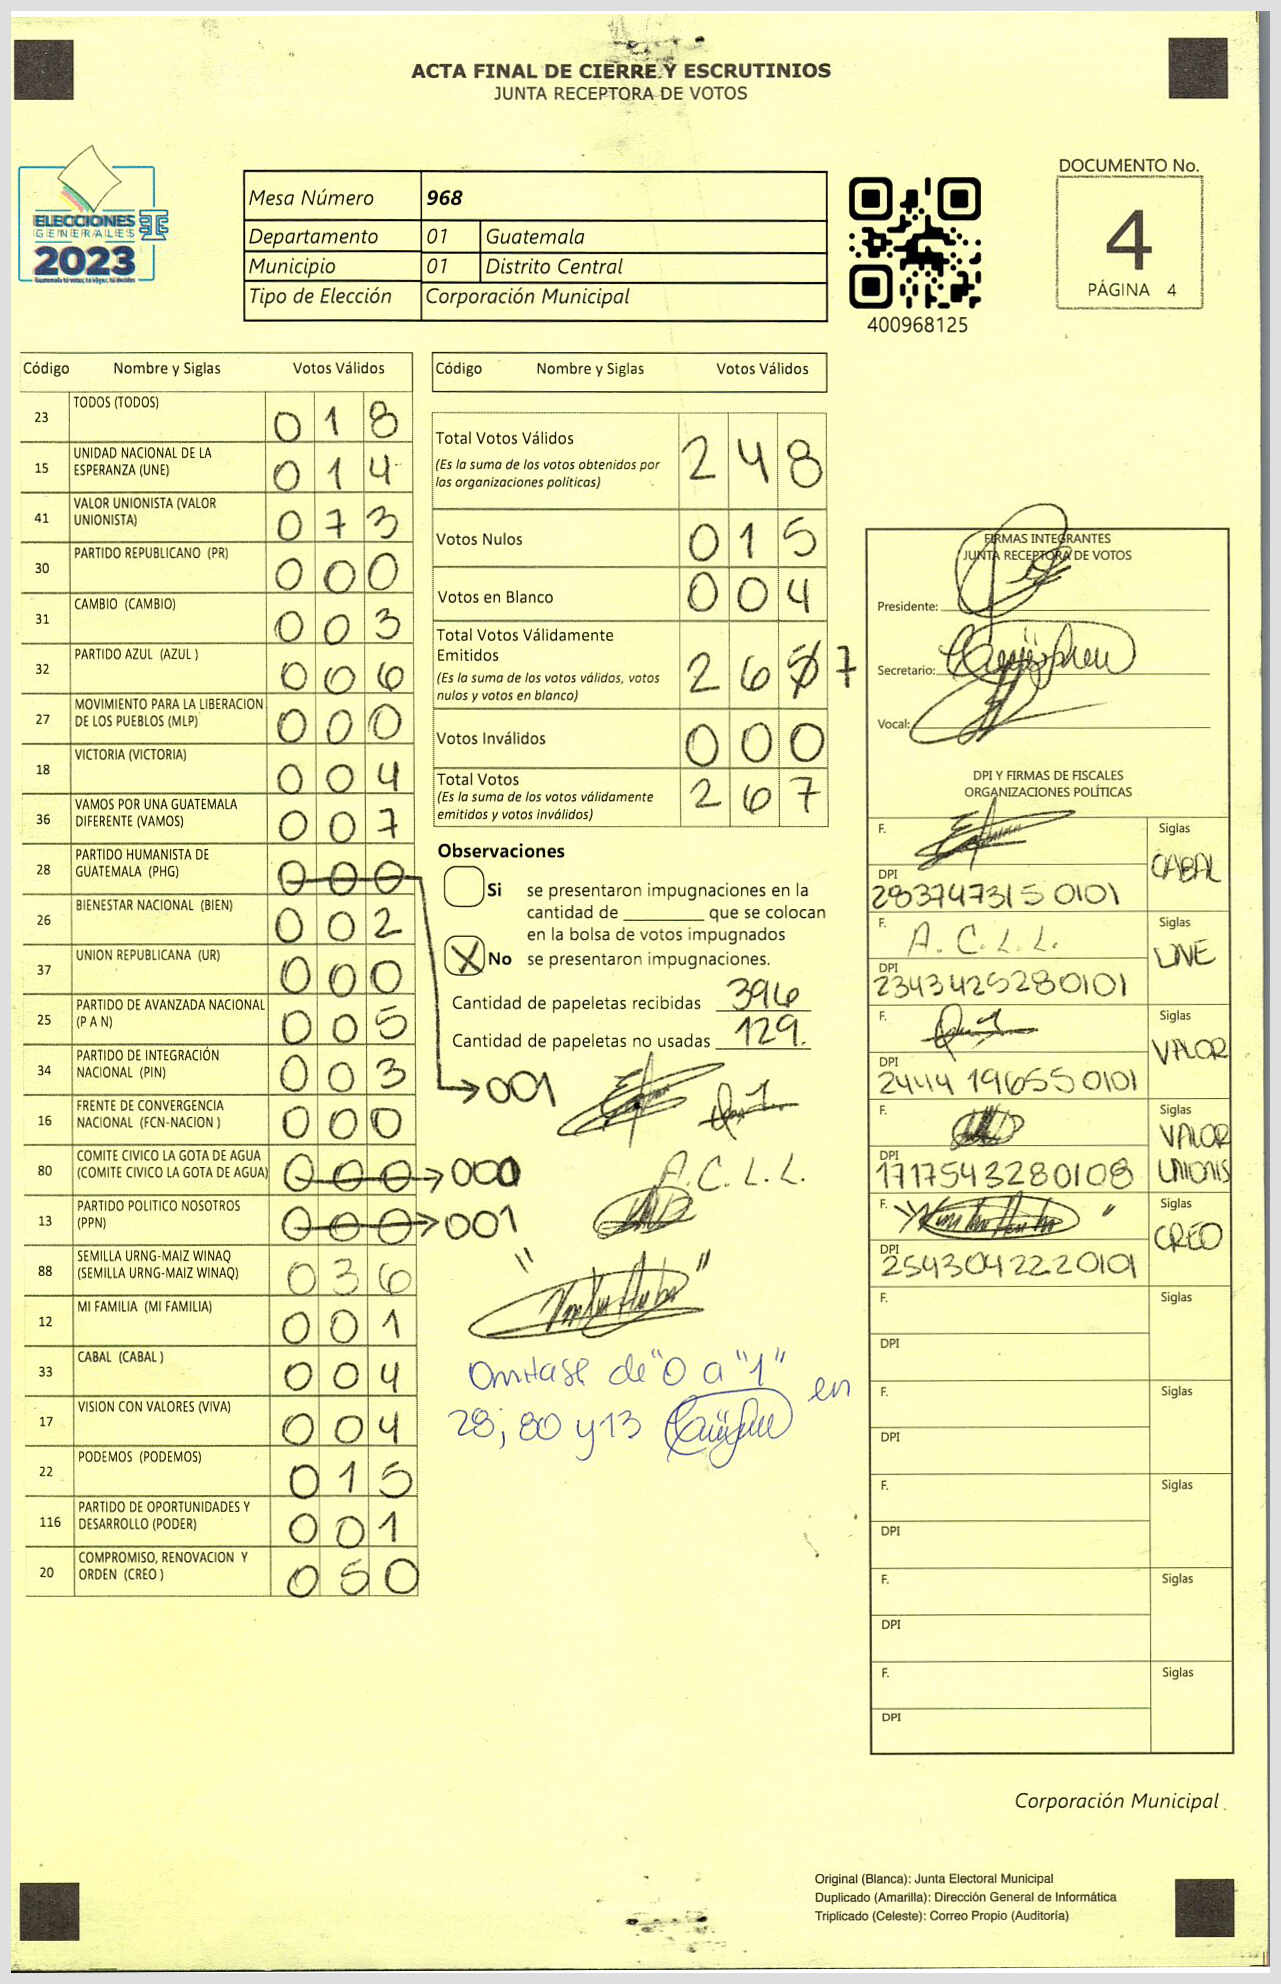 ACTA FINAL DE CIERRE Y ESCRUTINIOS
JUNTA RECEPTORA DE VOTOS
ELECCIONES
GENERALES
2023
Mesa Número 968
Departamento 01 Guatemala
Municipio 01 Distrito Central
Tipo de Elección Corporación Municipal
400968125
DOCUMENTO No.
4
PÁGINA 4
Código Nombre y Siglas Votos Válidos
23 TODOS (TODOS) 0 1 8
15 UNIDAD NACIONAL DE LA
ESPERANZA (UNE) 0 1 4
41 VALOR UNIONISTA (VALOR
UNIONISTA) 0 7 3
30 PARTIDO REPUBLICANO (PR) 0 0 0
31 CAMBIO (CAMBIO) 0 0 3
32 PARTIDO AZUL (AZUL ) 0 0 6
27 MOVIMIENTO PARA LA LIBERACION
DE LOS PUEBLOS (MLP) 0 0 0
18 VICTORIA (VICTORIA) 0 0 4
36 VAMOS POR UNA GUATEMALA
DIFERENTE (VAMOS) 0 0 7
28 PARTIDO HUMANISTA DE
GUATEMALA (PHG) 0 0 0
26 BIENESTAR NACIONAL (BIEN) 0 0 2
37 UNION REPUBLICANA (UR) 0 0 0
25 PARTIDO DE AVANZADA NACIONAL
(P A N) 0 0 5
34 PARTIDO DE INTEGRACIÓN
NACIONAL (PIN) 0 0 3
16 FRENTE DE CONVERGENCIA
NACIONAL (FCN-NACION ) 0 0 0
80 COMITE CIVICO LA GOTA DE AGUA
(COMITE CIVICO LA GOTA DE AGUA) 0 0 0
13 PARTIDO POLITICO NOSOTROS
(PPN) 0 0 0
88 SEMILLA URNG-MAIZ WINAQ
(SEMILLA URNG-MAIZ WINAQ) 0 3 6
12 MI FAMILIA (MI FAMILIA) 0 0 1
33 CABAL (CABAL ) 0 0 4
17 VISION CON VALORES (VIVA) 0 0 4
22 PODEMOS (PODEMOS) 0 1 5
116 PARTIDO DE OPORTUNIDADES Y
DESARROLLO (PODER) 0 0 1
20 COMPROMISO, RENOVACION Y
ORDEN (CREO ) 0 5 0
Código Nombre y Siglas Votos Válidos
Total Votos Válidos 2 4 8
(Es la suma de los votos obtenidos por
las organizaciones políticas)
Votos Nulos 0 1 5
Votos en Blanco 0 0 4
Total Votos Válidamente
Emitidos 2 6 7
(Es la suma de los votos válidos, votos
nulos y votos en blanco)
Votos Inválidos 0 0 0
Total Votos 2 6 7
(Es la suma de los votos válidamente
emitidos y votos inválidos)
Observaciones
Si se presentaron impugnaciones en la
cantidad de ________ que se colocan
en la bolsa de votos impugnados
X No se presentaron impugnaciones.
Cantidad de papeletas recibidas 396
Cantidad de papeletas no usadas 129.
001
000
A. C. L. L.
001
Omitase de "0 a "1" en
28; 80 y 13
FIRMAS INTEGRANTES
JUNTA RECEPTORA DE VOTOS
Presidente:
Secretario:
Vocal:
DPI Y FIRMAS DE FISCALES
ORGANIZACIONES POLÍTICAS
F. Siglas
CABAL
DPI
283747315 0101
F. A. C. L. L. Siglas
UNE
DPI
2343425280101
F. Siglas
VALOR
DPI
2444 19655 0101
F. Siglas
VALOR
UNIONIS
DPI
1717543280108
F. Siglas
CREO
DPI
2543042220101
F. Siglas
DPI
F. Siglas
DPI
F. Siglas
DPI
F. Siglas
DPI
F. Siglas
DPI
Corporación Municipal
Original (Blanca): Junta Electoral Municipal
Duplicado (Amarilla): Dirección General de Informática
Triplicado (Celeste): Correo Propio (Auditoría)